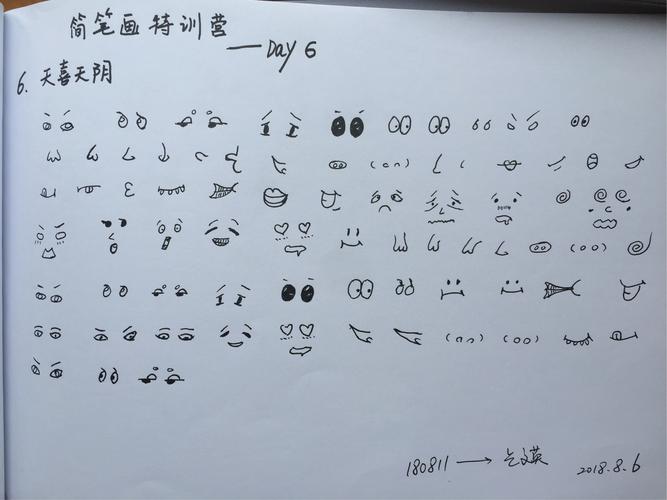 简笔画特训营
——Day 6
6. 天喜天阴
180811 → 文英
2018.8.6